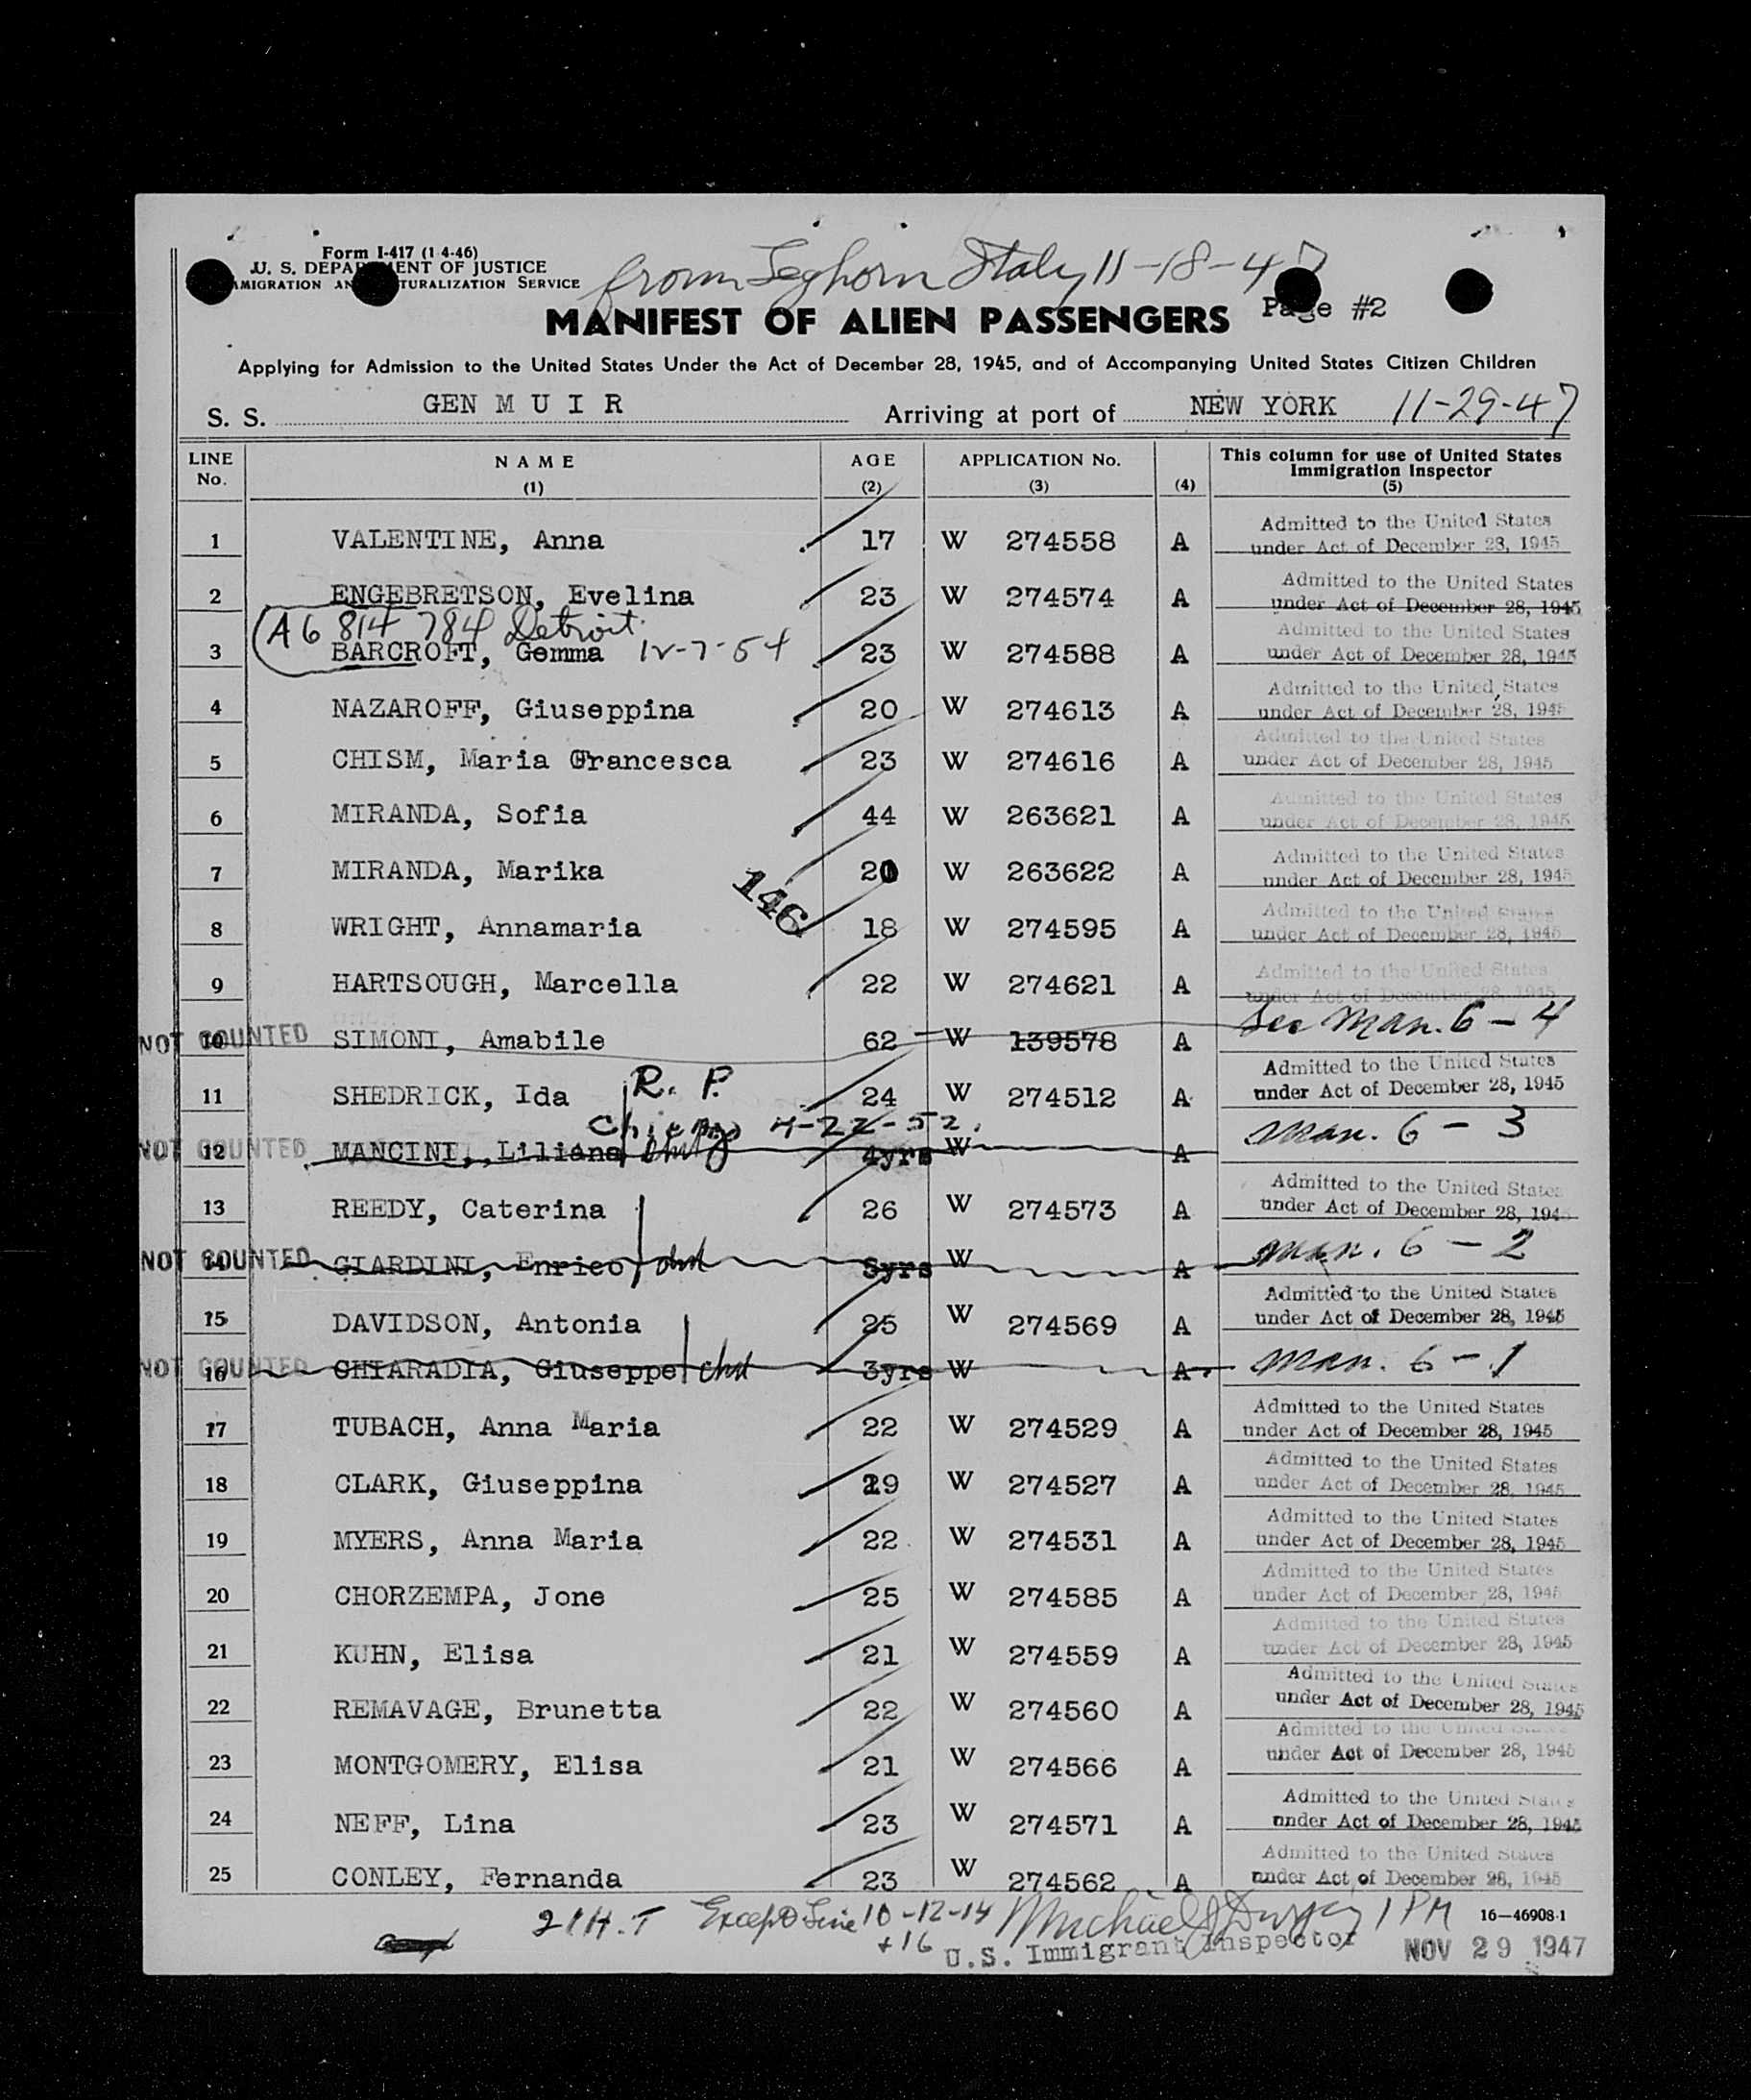 Form I-417 (1 4-46)
U. S. DEPARTMENT OF JUSTICE
IMMIGRATION AND NATURALIZATION SERVICE
from Leghorn Italy 11-18-47
Page #2
MANIFEST OF ALIEN PASSENGERS
Applying for Admission to the United States Under the Act of December 28, 1945, and of Accompanying United States Citizen Children
S. S. GEN M U I R Arriving at port of NEW YORK 11-29-47
LINE No. NAME (1) AGE (2) APPLICATION No. (3) (4) This column for use of United States Immigration Inspector (5)
1 VALENTINE, Anna 17 W 274558 A Admitted to the United States under Act of December 28, 1945
2 ENGEBRETSON, Evelina 23 W 274574 A Admitted to the United States under Act of December 28, 1945
A6 814 784 Detroit
3 BARCROFT, Gemma 12-7-54 23 W 274588 A Admitted to the United States under Act of December 28, 1945
4 NAZAROFF, Giuseppina 20 W 274613 A Admitted to the United States under Act of December 28, 1945
5 CHISM, Maria Francesca 23 W 274616 A Admitted to the United States under Act of December 28, 1945
6 MIRANDA, Sofia 44 W 263621 A Admitted to the United States under Act of December 28, 1945
7 MIRANDA, Marika 20 W 263622 A Admitted to the United States under Act of December 28, 1945
146
8 WRIGHT, Annamaria 18 W 274595 A Admitted to the United States under Act of December 28, 1945
9 HARTSOUGH, Marcella 22 W 274621 A Admitted to the United States under Act of December 28, 1945
NOT COUNTED 10 SIMONI, Amabile 62 W 139578 A See Man. 6-4
11 SHEDRICK, Ida R. P. 24 W 274512 A Admitted to the United States under Act of December 28, 1945
Chicago 4-22-52
NOT COUNTED 12 MANCINI, Liliana 4yrs W A Man. 6-3
13 REEDY, Caterina 26 W 274573 A Admitted to the United States under Act of December 28, 1945
NOT COUNTED 14 GIARDINI, Enrico chd W A man. 6-2
15 DAVIDSON, Antonia 25 W 274569 A Admitted to the United States under Act of December 28, 1945
NOT COUNTED 16 CHIARADIA, Giuseppe chd 3yrs W A man. 6-1
17 TUBACH, Anna Maria 22 W 274529 A Admitted to the United States under Act of December 28, 1945
18 CLARK, Giuseppina 29 W 274527 A Admitted to the United States under Act of December 28, 1945
19 MYERS, Anna Maria 22 W 274531 A Admitted to the United States under Act of December 28, 1945
20 CHORZEMPA, Jone 25 W 274585 A Admitted to the United States under Act of December 28, 1945
21 KUHN, Elisa 21 W 274559 A Admitted to the United States under Act of December 28, 1945
22 REMAVAGE, Brunetta 22 W 274560 A Admitted to the United States under Act of December 28, 1945
23 MONTGOMERY, Elisa 21 W 274566 A Admitted to the United States under Act of December 28, 1945
24 NEFF, Lina 23 W 274571 A Admitted to the United States under Act of December 28, 1945
25 CONLEY, Fernanda 23 W 274562 A Admitted to the United States under Act of December 28, 1945
21 H.T Except Line 10-12-14 +16 Michael J 1 PM 16-46908-1
U.S. Immigrant Inspector NOV 29 1947